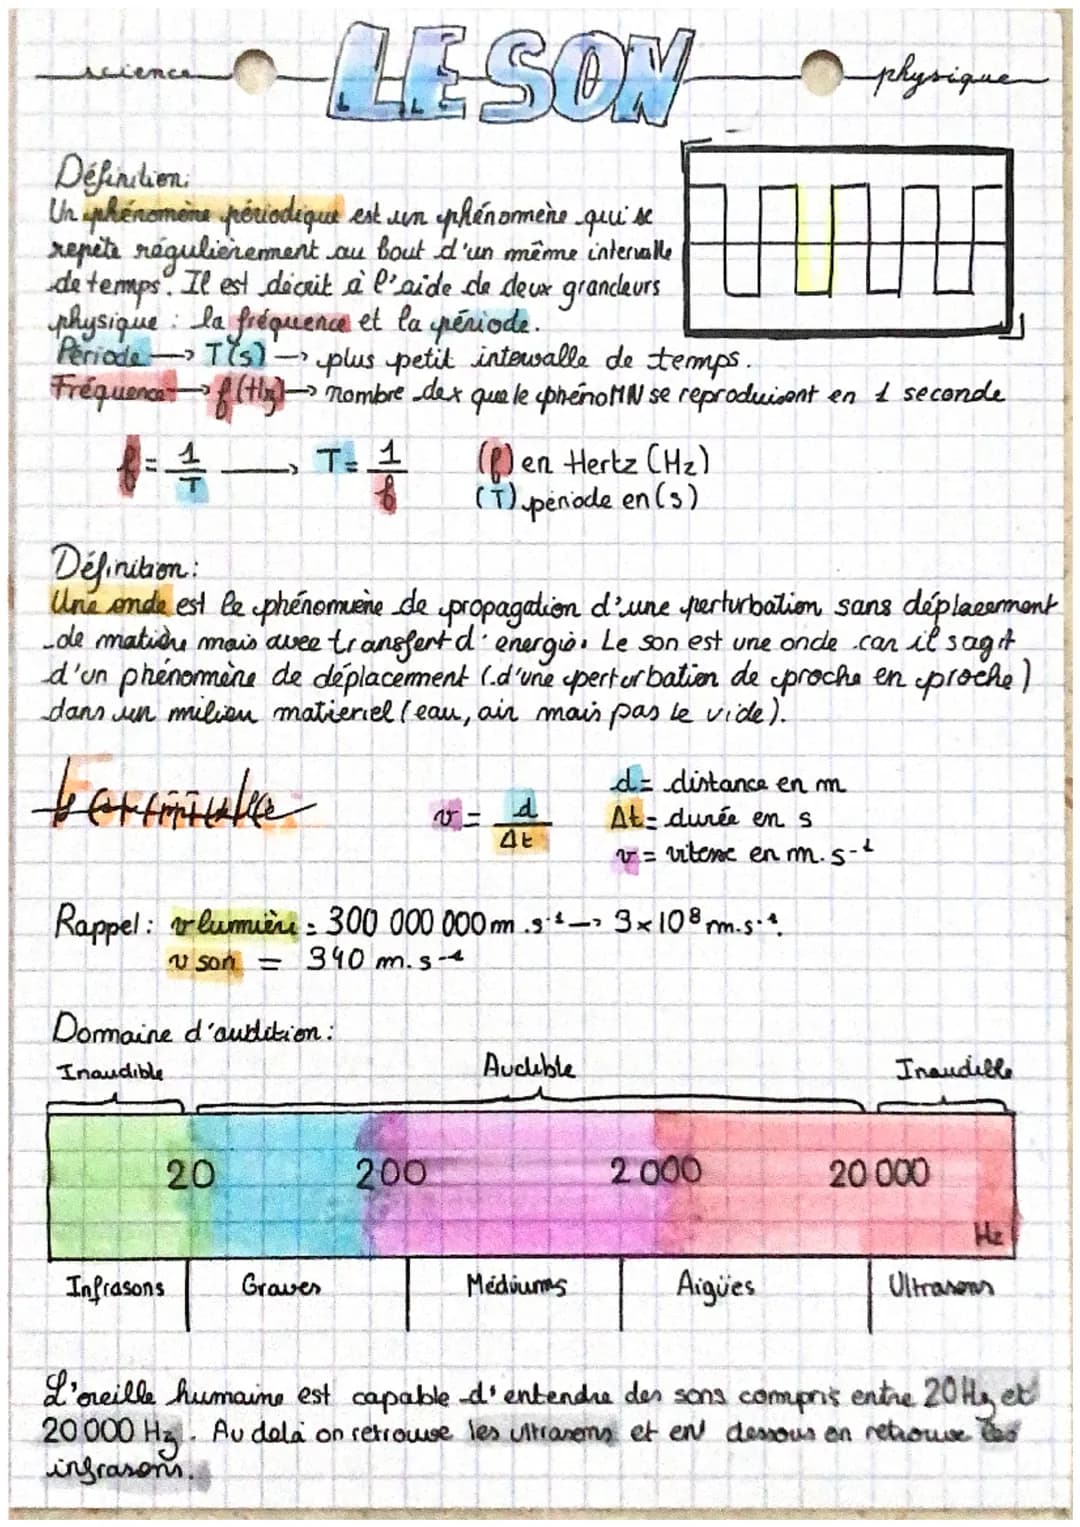 science LE SON physique
Définition:
Un phénomène périodique est un phénomène qui se
repète régulièrement au bout d'un même intervalle
de temps. Il est décrit à l'aide de deux grandeurs
physique : la fréquence et la période.
Période → T(s) → plus petit intervalle de temps.
Fréquence → f(Hz) → nombre de x que le phénoMN se reproduisent en 1 seconde
f = 1/T → T = 1/f (f) en Hertz (Hz)
(T) période en (s)
Définition:
Une onde est le phénomène de propagation d'une perturbation sans déplacement
de matière mais avec transfert d'energie. Le son est une onde car il sagit
d'un phénomène de déplacement (d'une perturbation de proche en proche)
dans un milieu matieriel (eau, air mais pas le vide).
Formule: v = d/Δt
d = distance en m
Δt = durée en s
v = vitesse en m.s-1
Rappel: v lumière = 300 000 000 m.s-1 → 3×10⁸ m.s-1.
v son = 340 m.s-1
Domaine d'audition:
Inaudible Audible Inaudible
20 200 2 000 20 000
Hz
Infrasons Graves Médiums Aigües Ultrasons
L'oreille humaine est capable d'entendre des sons compris entre 20 Hz et
20 000 Hz. Au delà on retrouve les ultrasons et en dessous on retrouve les
infrasons.